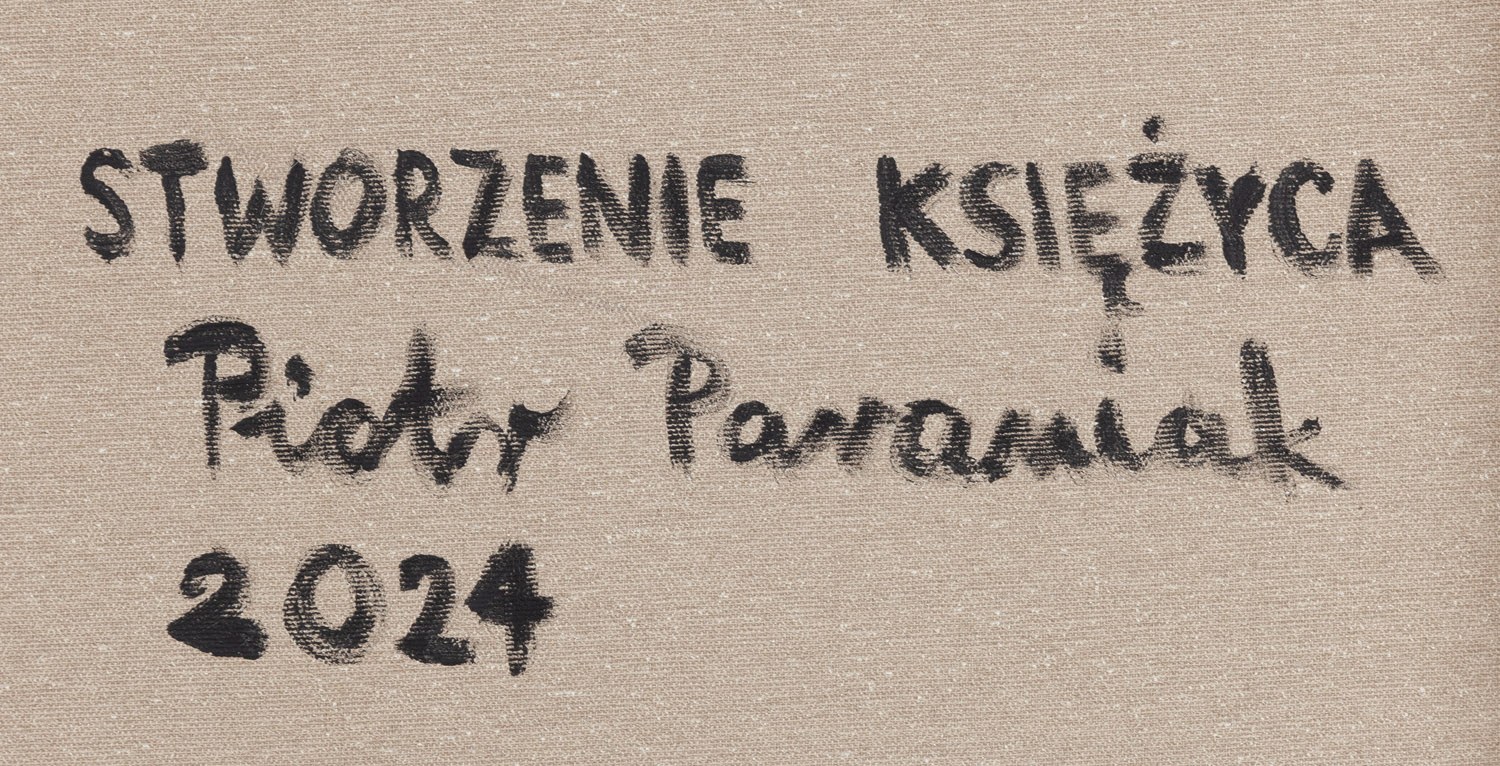 STWORZENIE KSIĘŻYCA
Piotr Paraniak
2024